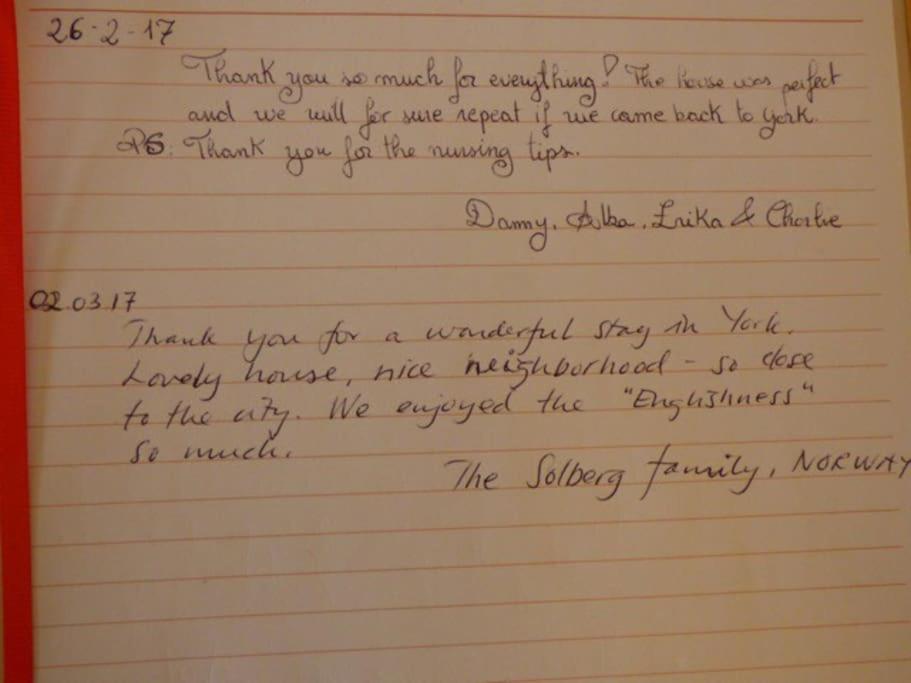 26-2-17
Thank you so much for everything! The house was perfect
and we will for sure repeat if we came back to York.
PS: Thank you for the nursing tips.
Danny, Alba, Erika & Charlie
02.03.17
Thank you for a wonderful stay in York.
Lovely house, nice neighborhood - so close
to the city. We enjoyed the "Englishness"
so much.
The Solberg family, NORWAY